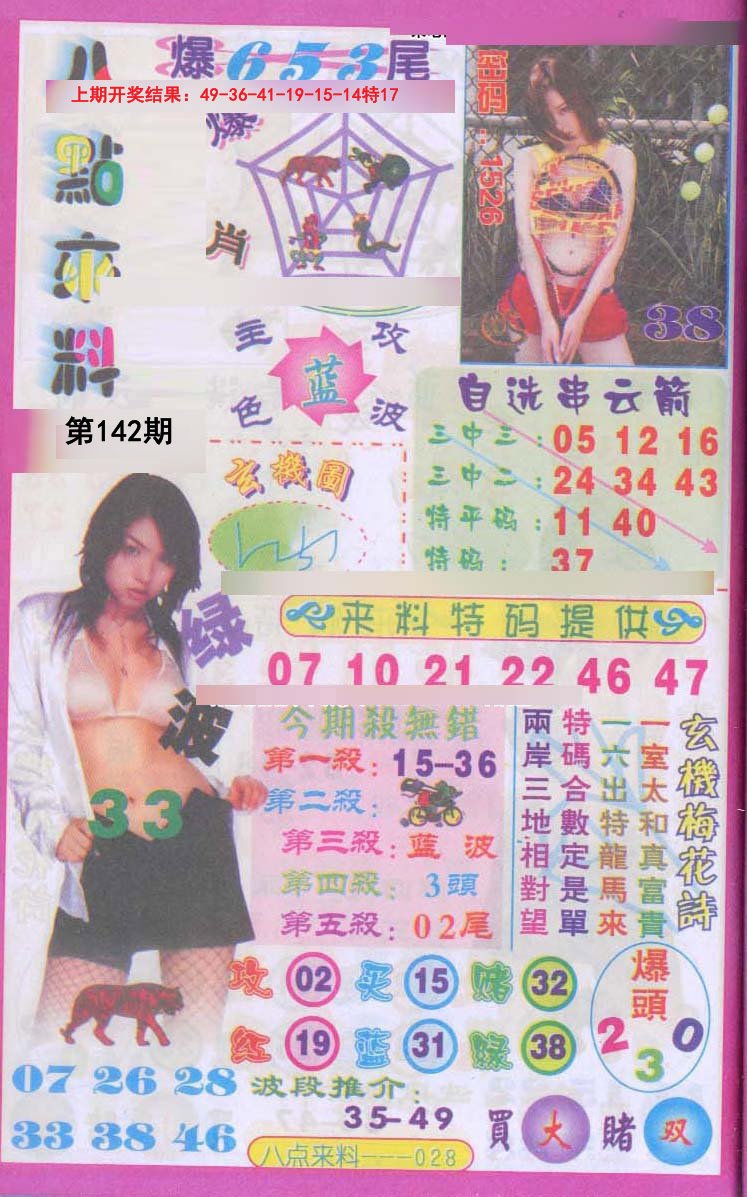 爆653尾
上期开奖结果：49-36-41-19-15-14特17
八點來料
爆肖
密码：1526
38
主攻
蓝
色波
自选串云箭
三中三：05 12 16
三中二：24 34 43
特平码：11 40
特码：37
第142期
玄機圖
来料特码提供
07 10 21 22 46 47
绿波
33
今期殺無錯
第一殺：15-36
第二殺：
第三殺：蓝波
第四殺：3頭
第五殺：02尾
玄機梅花詩
一室太和真富貴
一六出特龍馬來
特碼合數定是單
兩岸三地相對望
攻 02 买 15 赌 32
红 19 蓝 31 绿 38
爆頭
2 3 0
07 26 28
33 38 46
波段推介：
35-49
買大賭双
八点来料---028